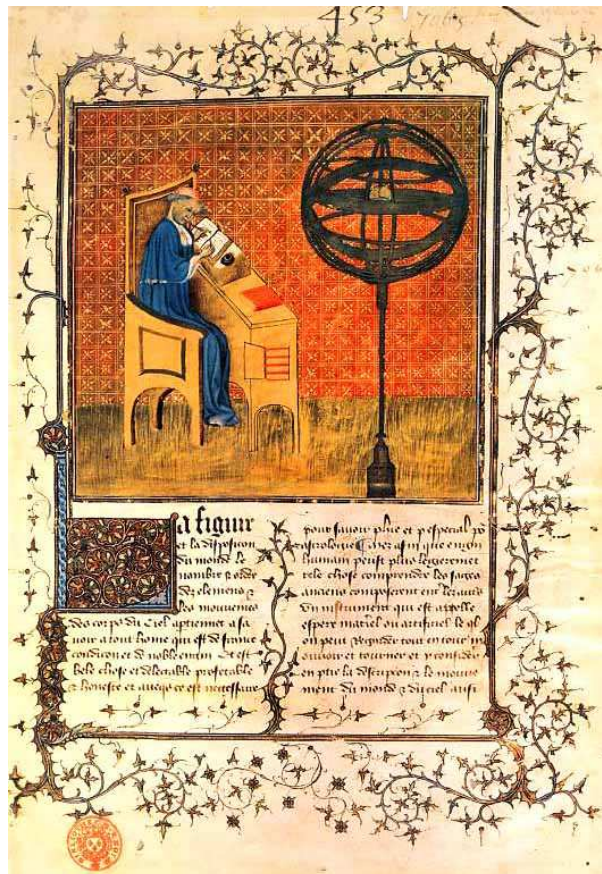 453
7065
La figure
et la disposicion
du monde le
nombre & ordre
des elemens &
les mouvemens
des corps du ciel aptiennet a sa
voir a tout home qui est de france
condicion et de noble engin Et est
bele chose et delectable profetable
& honeste et avecques ce est necessaire
pour savoir plus et p especial po
astrologie Car afin que engin
humain peust plus legierement
tele chose comprendre les sages
anciens composerent
un instrument qui est appelle
espere materiel ou artificiel le ql
on peut regarder tout entour
mouvoir et tourner et y considerer
en ptie la descripcion & le mouve
ment du monde & du ciel ausi